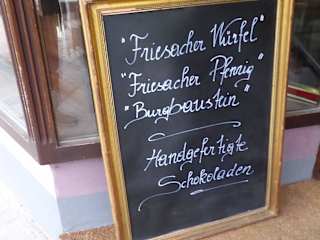 "Friesacher Würfel"
"Friesacher Pfennig"
"Burgbaustein"
Handgefertigte
Schokoladen